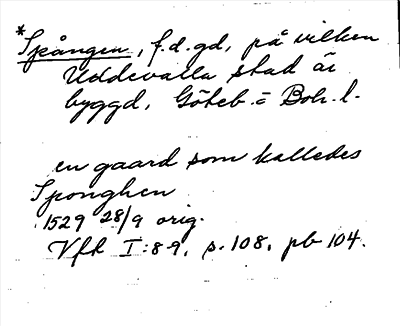 *Spången, f.d. gd, på vilken
Uddevalla stad är
byggd, Göteb. = Boh. l.
en gaard som kalledes
Sponghen
1529 28/9 orig.
Vfh I:8-9, s. 108, pb 104.